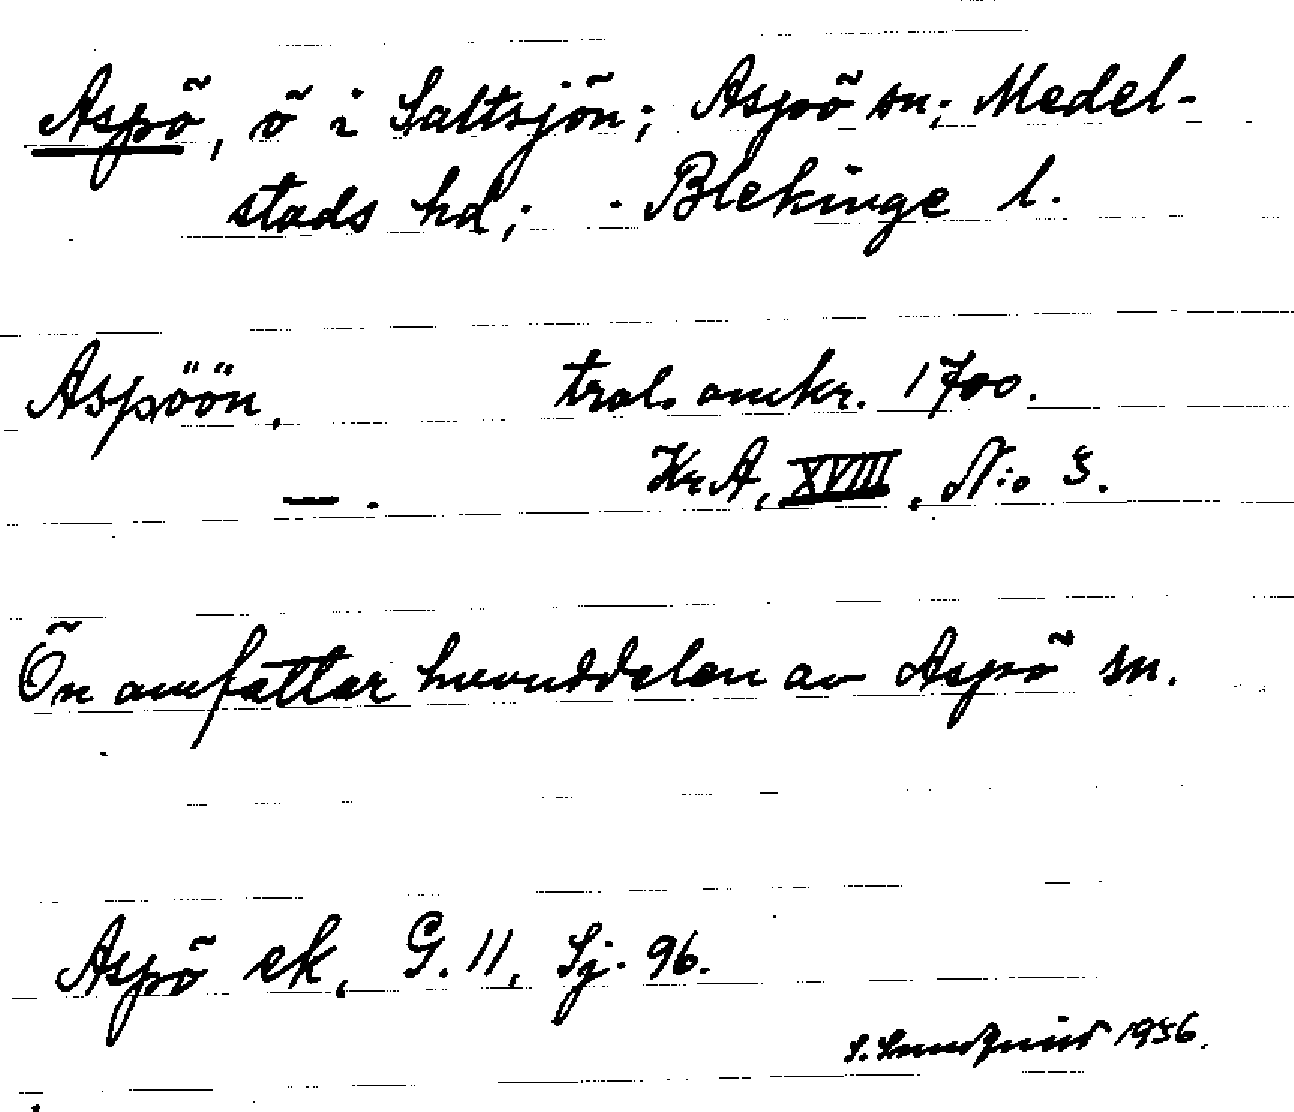 Aspö, ö i Saltsjön; Aspö sn; Medel-
stads hd; Blekinge l.
Aspöön. trol. omkr. 1700.
—. KrA, XVIII, N:o 3.
Ön omfattar huvuddelen av Aspö sn.
Aspö ek, G. 11, Sj. 96.
S. Sundquist 1936.